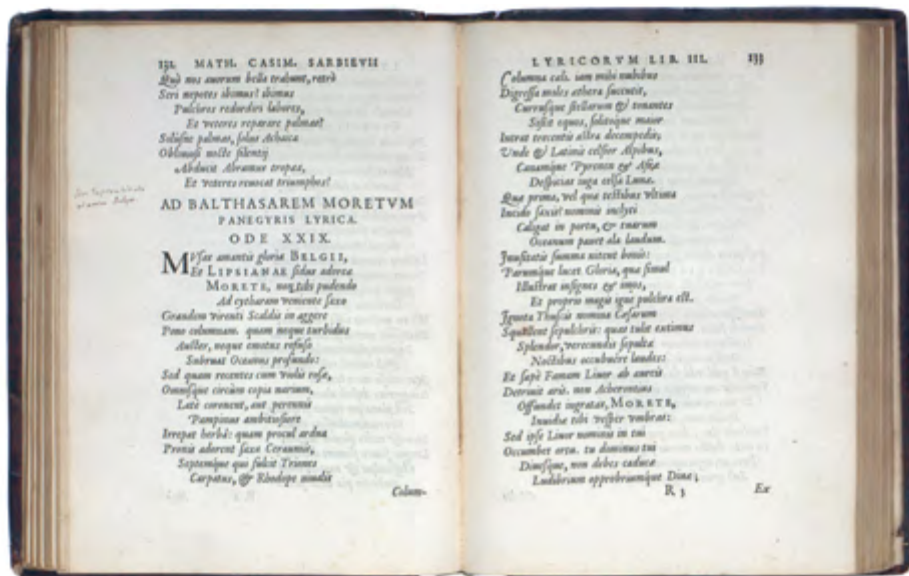 132 MATH. CASIM. SARBIEVII
Quò nos auorum bella trahunt, retrò
Seri nepotes ibimus? ibimus
Pulchros redordiri labores,
Et veteres reparare palmas?
Solúsne palmas, solus Achaica
Obliuiosi nocte silentij
Abducit Abramus tropæa,
Et veteres reuocat triumphos?
AD BALTHASAREM MORETVM
PANEGYRIS LYRICA.
ODE XXIX.
MVsæ amantis gloria BELGII,
Et LIPSIANAE sidus adoreæ
MORETE, non tibi pudendo
Ad cytharam veniente saxo
Grandem virenti Scaldis in aggere
Pono columnam. quam neque turbidus
Auster, neque emotus refuso
Subruat Oceanus profundo:
Sed quam recentes cum violis rosæ,
Omnisque circùm copia narium,
Latè coronent, aut perennis
Pampinus ambitiosiore
Irrepat herbâ: quam procul ardua
Pronis adorent saxa Cerauniis,
Septemque qui fulcit Triones
Carpatus, & Rhodope niualis
Colum-
LYRICORVM LIB. III. 133
Columna cæli. iam mihi nubibus
Digressa moles æthera succutit,
Currusque stellarum & tonantes
Sistit equos, solitoque maior
Intrat trecentis astra decempedis;
Unde & Latinis celsior Alpibus,
Canamque Pyrenen & Asiæ
Despiciat iuga celsa Lunæ.
Quæ prima, vel quæ testibus vltima
Incido saxis? nominis inclyti
Caligat in portu, & tuarum
Oceanum pauet ala laudum.
Inusitatis summa nitent bonis:
Parumque lucet Gloria, quæ simul
Illustrat insignes & imos,
Et propriis magis igne pulchra est.
Ignota Thuscis nomina Cæsarum
Squallent sepulchris: quas tulit extimus
Splendor, verecundis sepultæ
Noctibus occubuere laudes:
Et sæpè Famam Liuor ab aureis
Detrusit aris. non Acherontius
Offundet ingratas, MORETE,
Inuidiæ tibi vesper vmbras:
Sed ipse Liuor nominis in tui
Occumbet ortu. tu dominus tui
Diuesque, non debes caducæ
Ludibrium opprobriumque Diuæ;
R 3 Ex